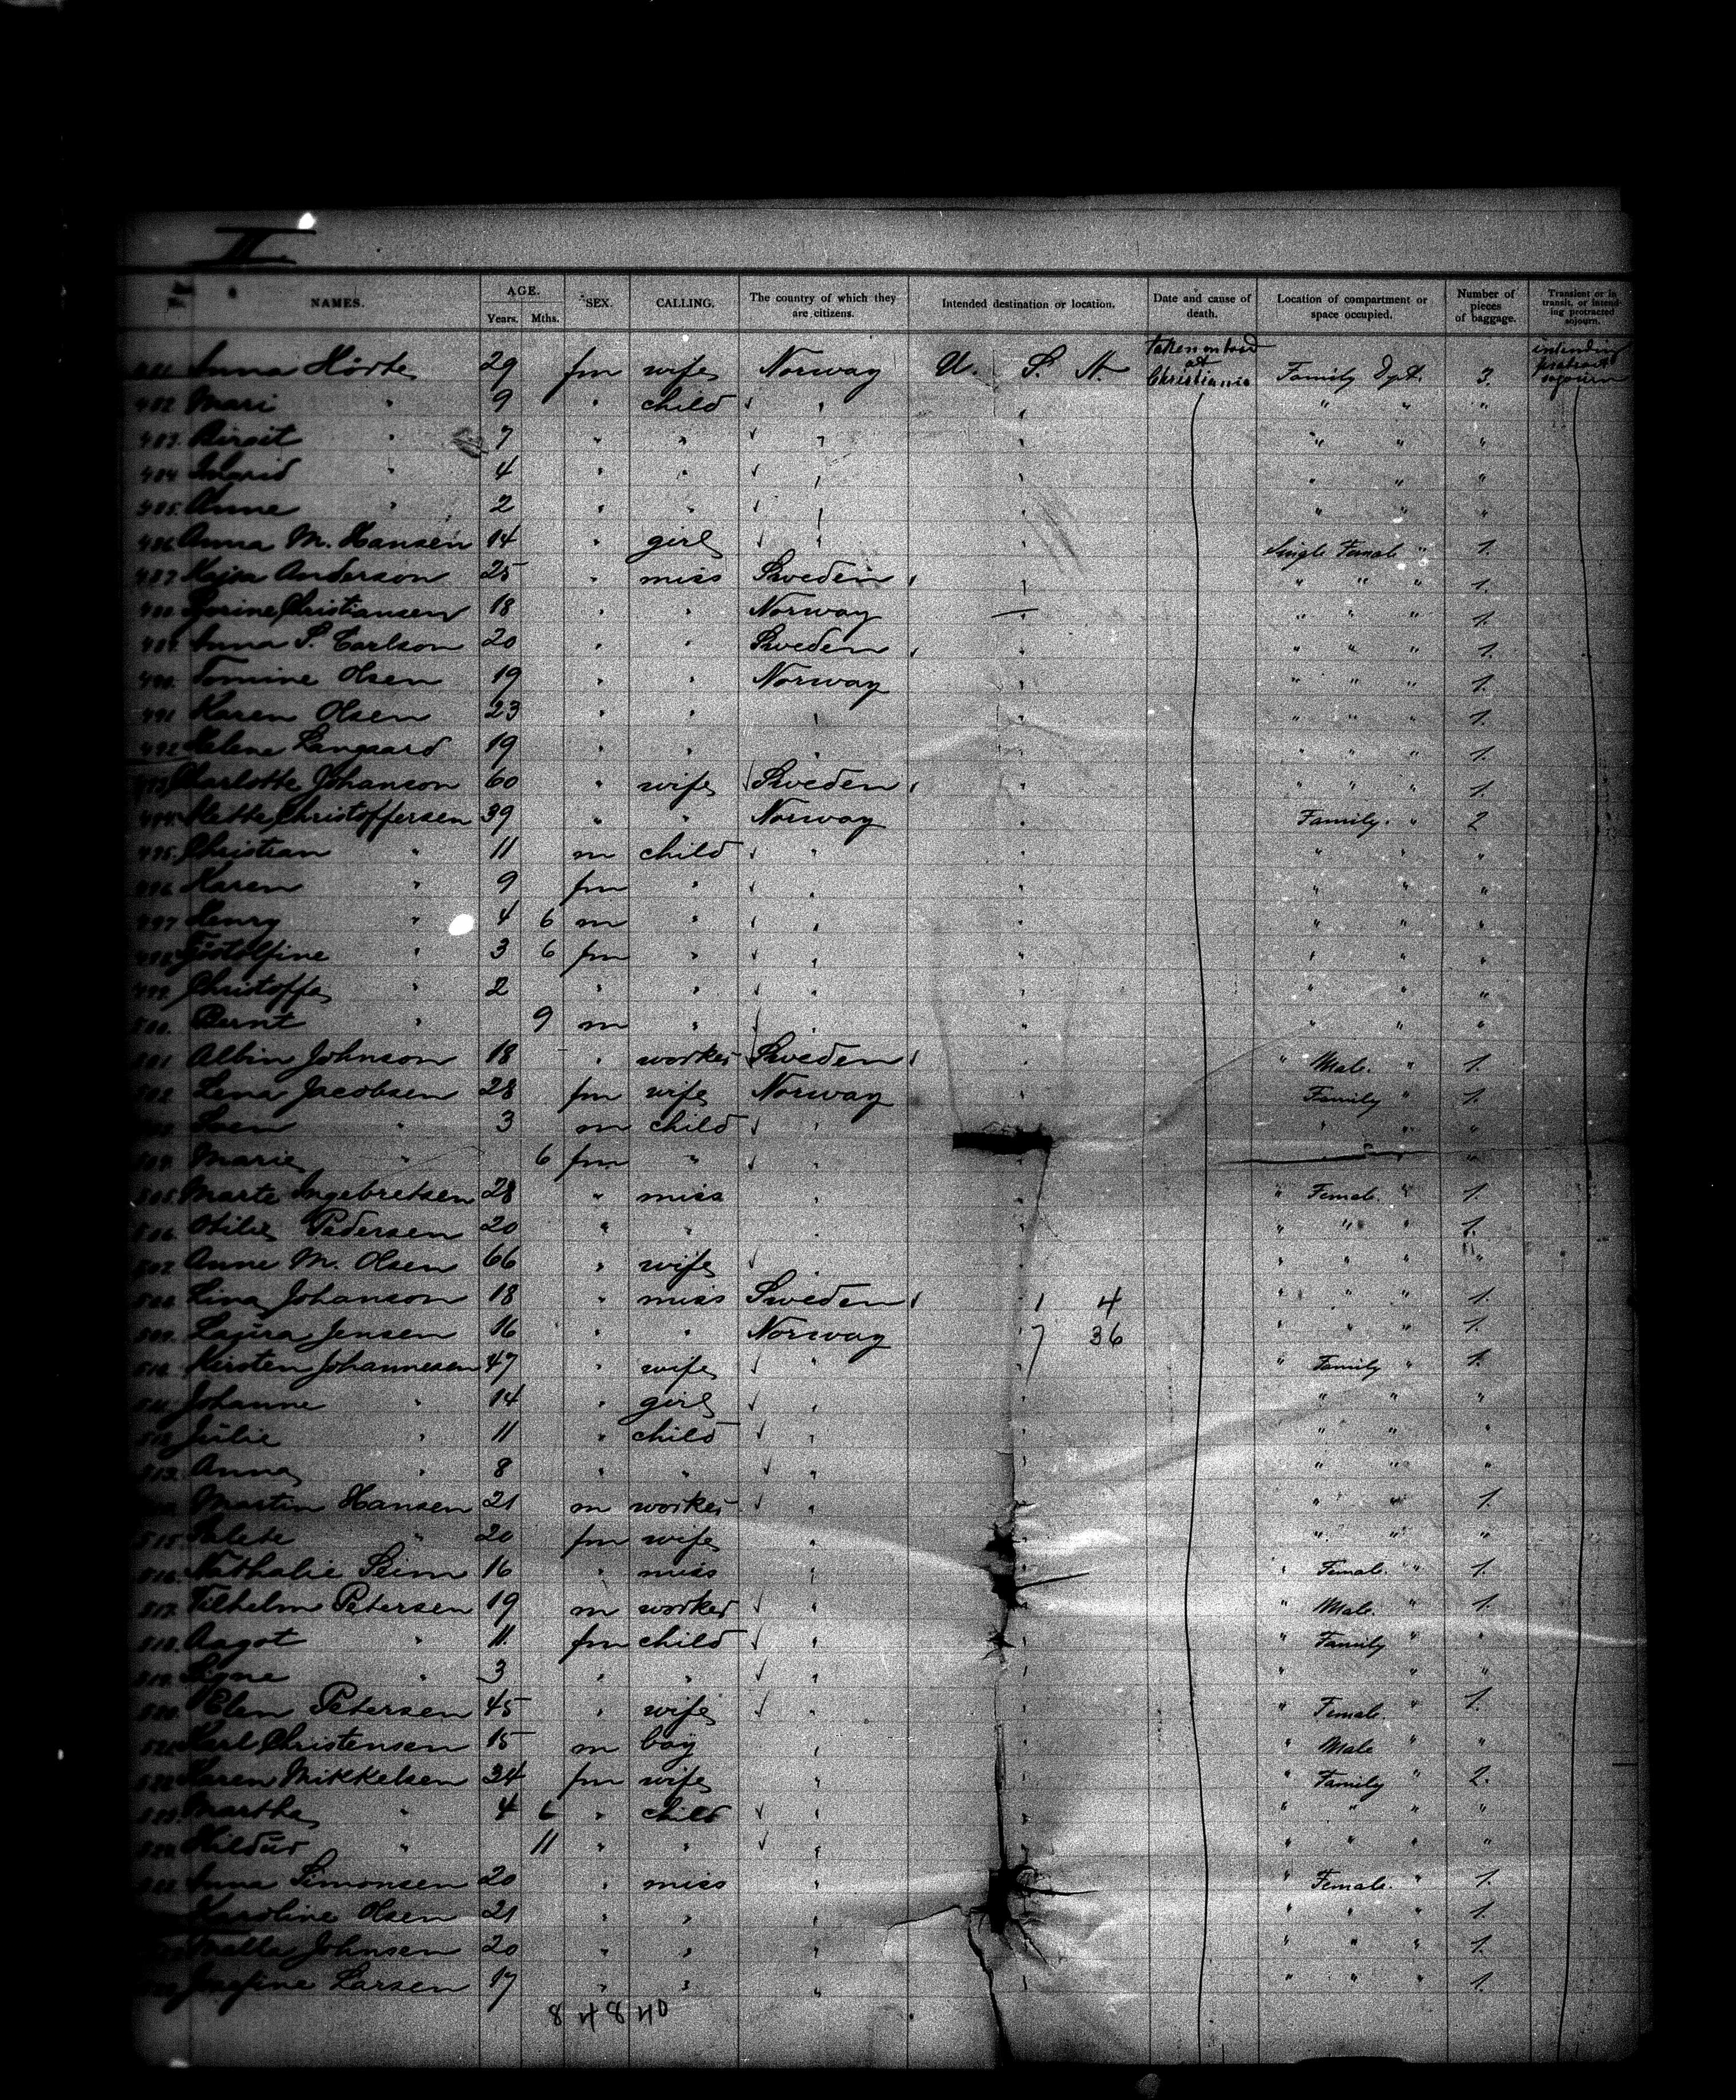 II
No. NAMES. AGE. Years. Mths. SEX. CALLING. The country of which they are citizens. Intended destination or location. Date and cause of death. Location of compartment or space occupied. Number of pieces of baggage. Transient or in transit, or intending protracted sojourn.
481. Anna Hörte 29 fm wife Norway U. S. A. Taken on board at Christiania Family Dpt. 3. intending protract sojourn
482. Mari " 9 " child " " " " "
483. Birgit " 7 " " " " " " "
484 Ingrid " 4 " " " " " " "
485. Anne " 2 " " " " " " "
486 Anna M. Hansen 14 " girl " " Single Female " 1.
487. Kajsa Anderson 25 " miss Sweden " " " " 1.
488. Christiansen 18 " " Norway " " " " 1.
489. Anna S. Carlson 20 " " Sweden " " " " 1.
490. Tomine Olsen 19 " " Norway " " " " 1.
491 Karen Olsen 23 " " " " " " " 1.
492 Helene Langaard 19 " " " " " " " 1.
493 Charlotte Johanson 60 " wife Sweden " " " " 1.
494. Mette Christoffersen 39 " " Norway " Family " 2
495. Christian " 11 m child " " " " "
496. Karen " 9 fm " " " " " "
497 Henry " 4 6 m " " " " " "
498 " 3 6 fm " " " " " "
499. Christoffer " 2 " " " " " " "
500. Bernt " 9 m " " " " " "
501 Albin Johnson 18 " worker Sweden " " Male. " 1.
502. Lena Jacobsen 28 fm wife Norway " Family " 1.
" 3 m child " " " " "
504. Marie " 6 fm " " " "
505. Marte Ingebretsen 28 " miss " " " Female. " 1.
506. Otilie Pedersen 20 " " " " " " " 1.
507. Anne M. Olsen 66 " wife " " " " " "
508. Lina Johanson 18 " miss Sweden 1 4 " " " 1.
509. Laura Jensen 16 " " Norway 7 36 " " " 1.
510. Kirsten Johannesen 47 " wife " " " Family " 1.
511. Johanne " 14 " girl " " " " "
512. Julie " 11 " child " " " " "
513. Anna " 8 " " " " " " "
Martin Hansen 21 m worker " " " " 1.
515. " 20 fm wife " " " " "
516. Nathalie 16 " miss " " " Female. " 1.
517. Vilhelm Petersen 19 m worker " " " Male. " 1.
518. Aagot " 11. fm child " " " Family " "
519. Signe " 3 " " " " " " "
520. Elen Petersen 45 " wife " " " Female. " 1.
521. Karl Christensen 15 m boy " " " Male " "
522. Karen Mikkelsen 34 fm wife " " " Family " 2.
523. Martha " 4 6 " child " " " " " "
524. Hildur " 11 " " " " " " " "
Anna Simonsen 20 " miss " " " Female. " 1.
Karoline Olsen 21 " " " " " " " 1.
Johnsen 20 " " " " " " " 1.
Josefine Larsen 17 " " " " " " " 1.
8 4 8 40